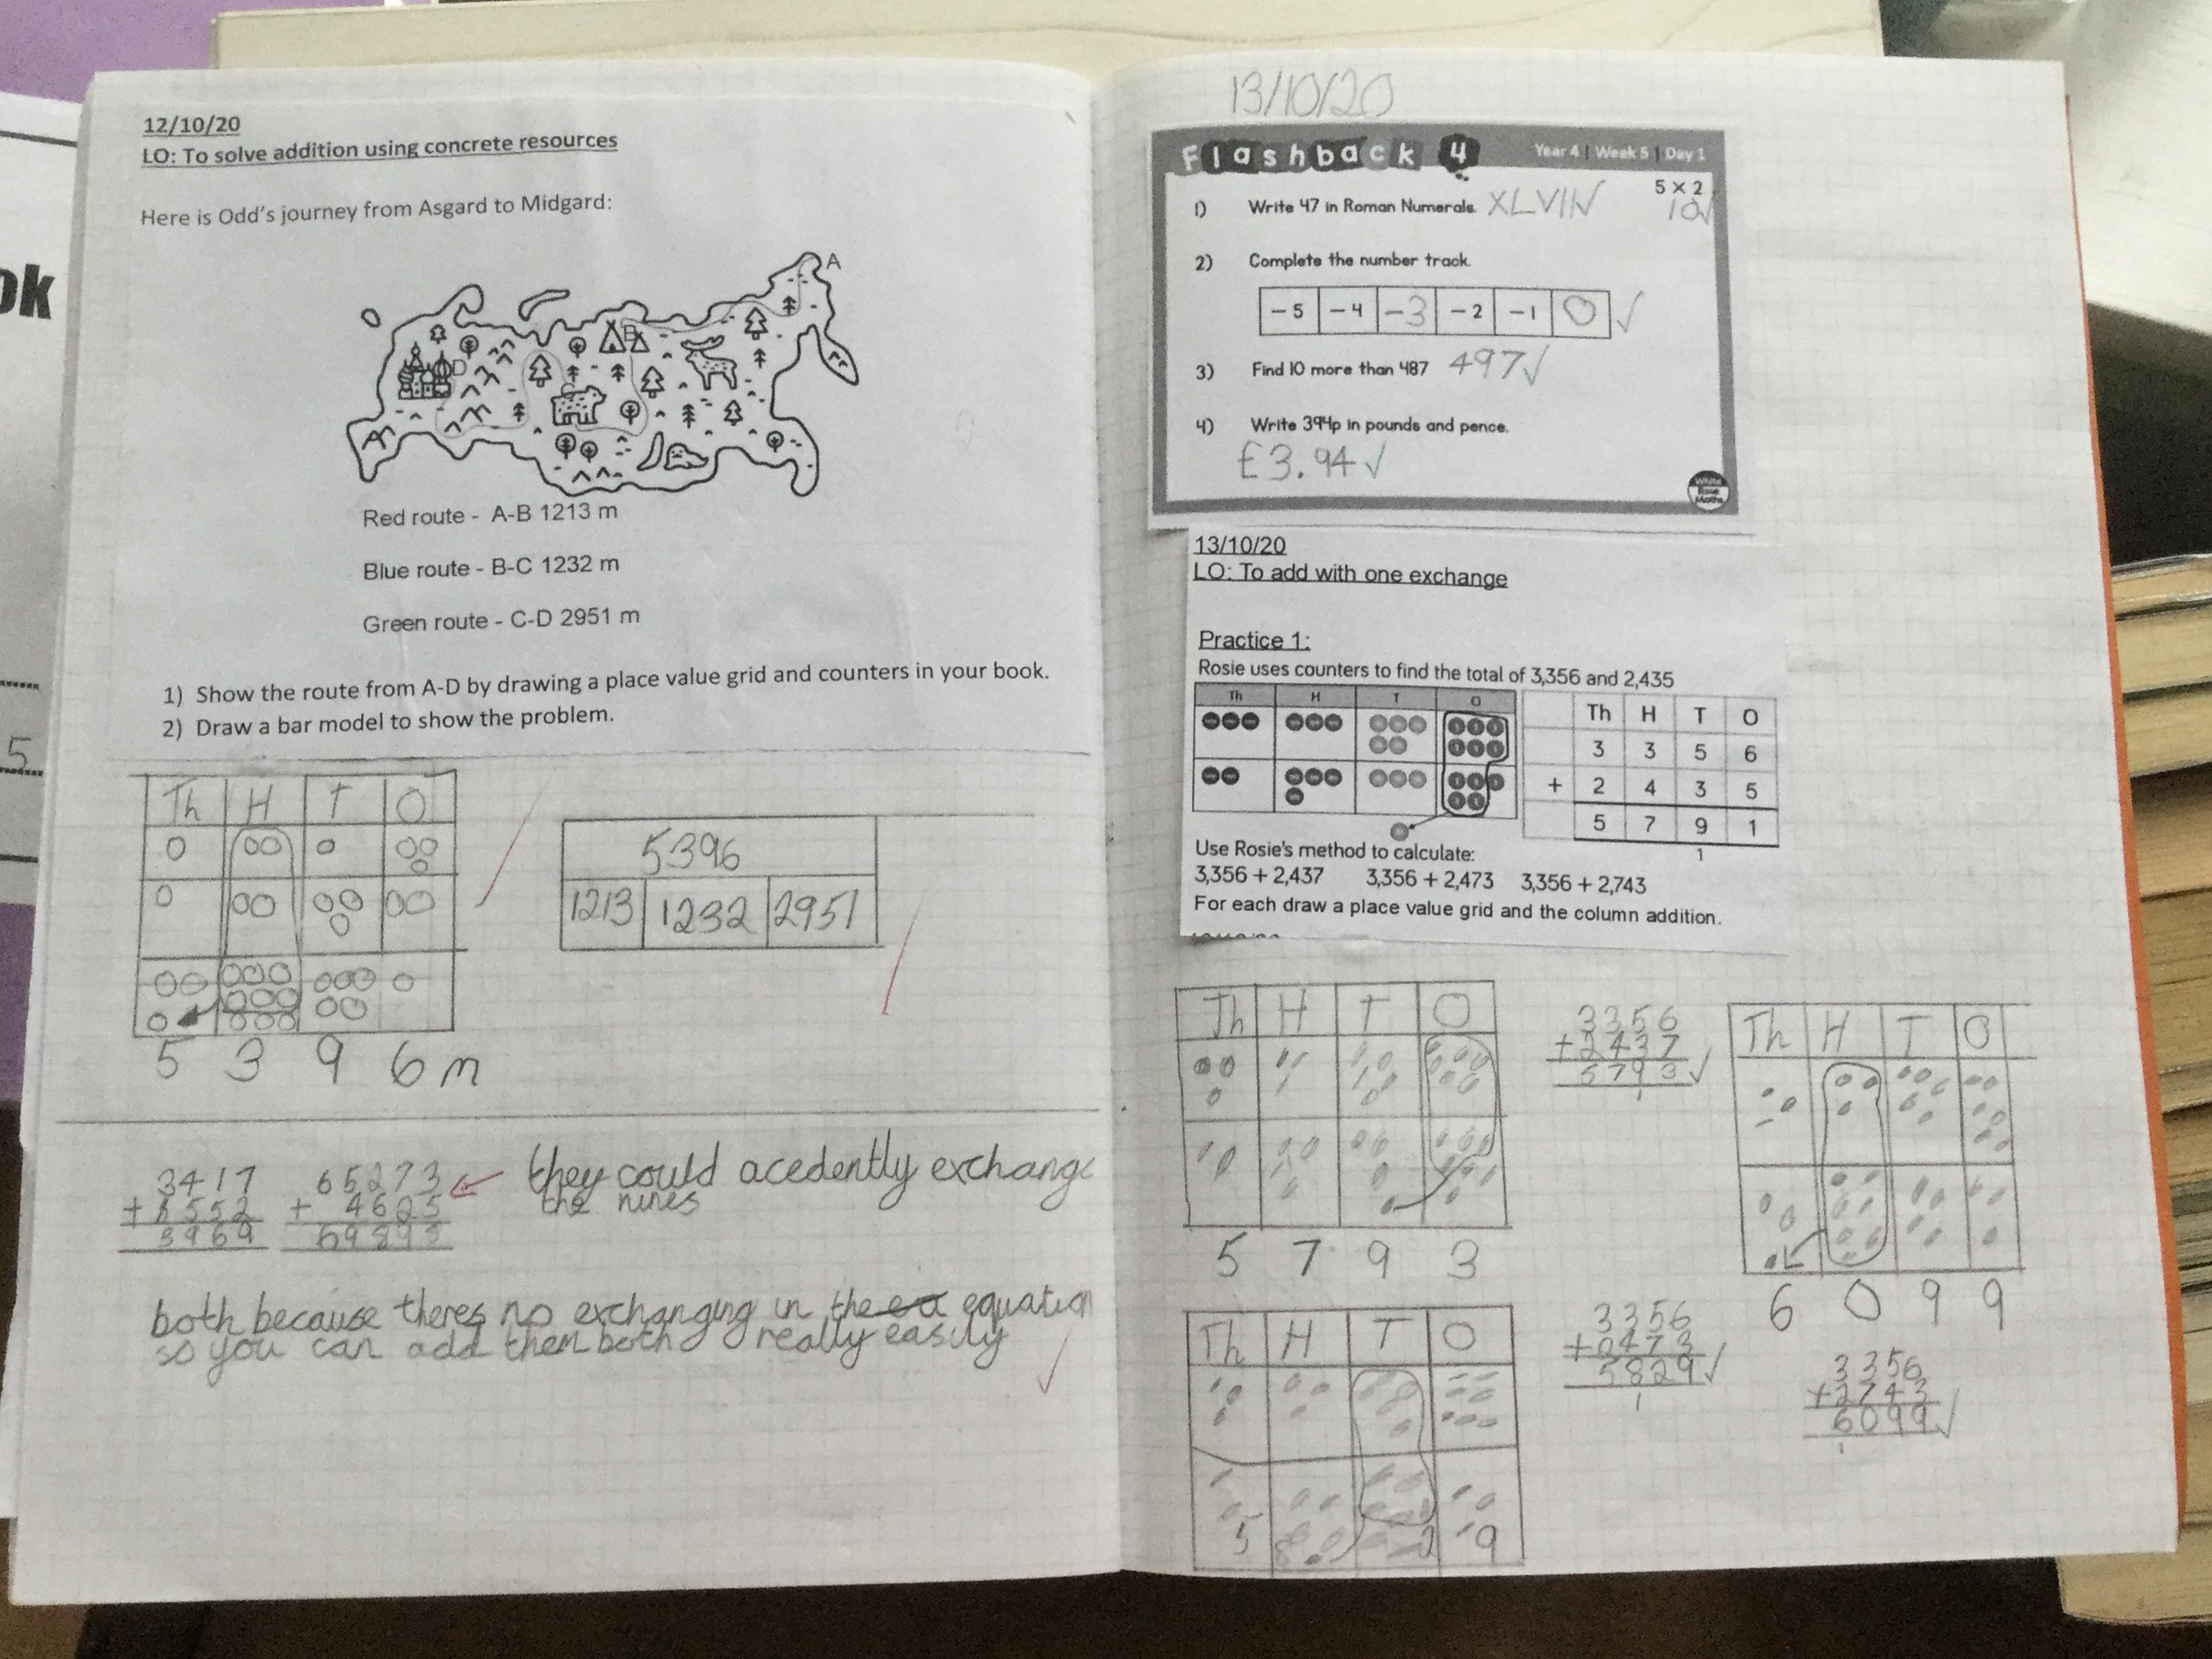 ok
5
12/10/20
LO: To solve addition using concrete resources
Here is Odd's journey from Asgard to Midgard:
A
B
C
D
Red route - A-B 1213 m
Blue route - B-C 1232 m
Green route - C-D 2951 m
1) Show the route from A-D by drawing a place value grid and counters in your book.
2) Draw a bar model to show the problem.
Th H T O
5 3 9 6 m
5396
1213 1232 2951
3417
65273
+ 4625
they could acedently exchange
the nines
both because theres no exchanging in the equation
so you can add them both really easily
13/10/20
Flashback 4 Year 4 | Week 5 | Day 1
5 × 2
10
1) Write 47 in Roman Numerals. XLVII
2) Complete the number track.
-5 -4 -3 -2 -1 0
3) Find 10 more than 487 497
4) Write 394p in pounds and pence.
£3.94
White Rose Maths
13/10/20
LO: To add with one exchange
Practice 1:
Rosie uses counters to find the total of 3,356 and 2,435
Th H T O
Th H T O
3 3 5 6
+ 2 4 3 5
5 7 9 1
1
Use Rosie's method to calculate:
3,356 + 2,437 3,356 + 2,473 3,356 + 2,743
For each draw a place value grid and the column addition.
Th H T O
5 7 9 3
3356
+2437
5793
1
Th H T O
6 0 9 9
Th H T O
5 8 2 9
3356
5829
1
3356
+2743
6099
1